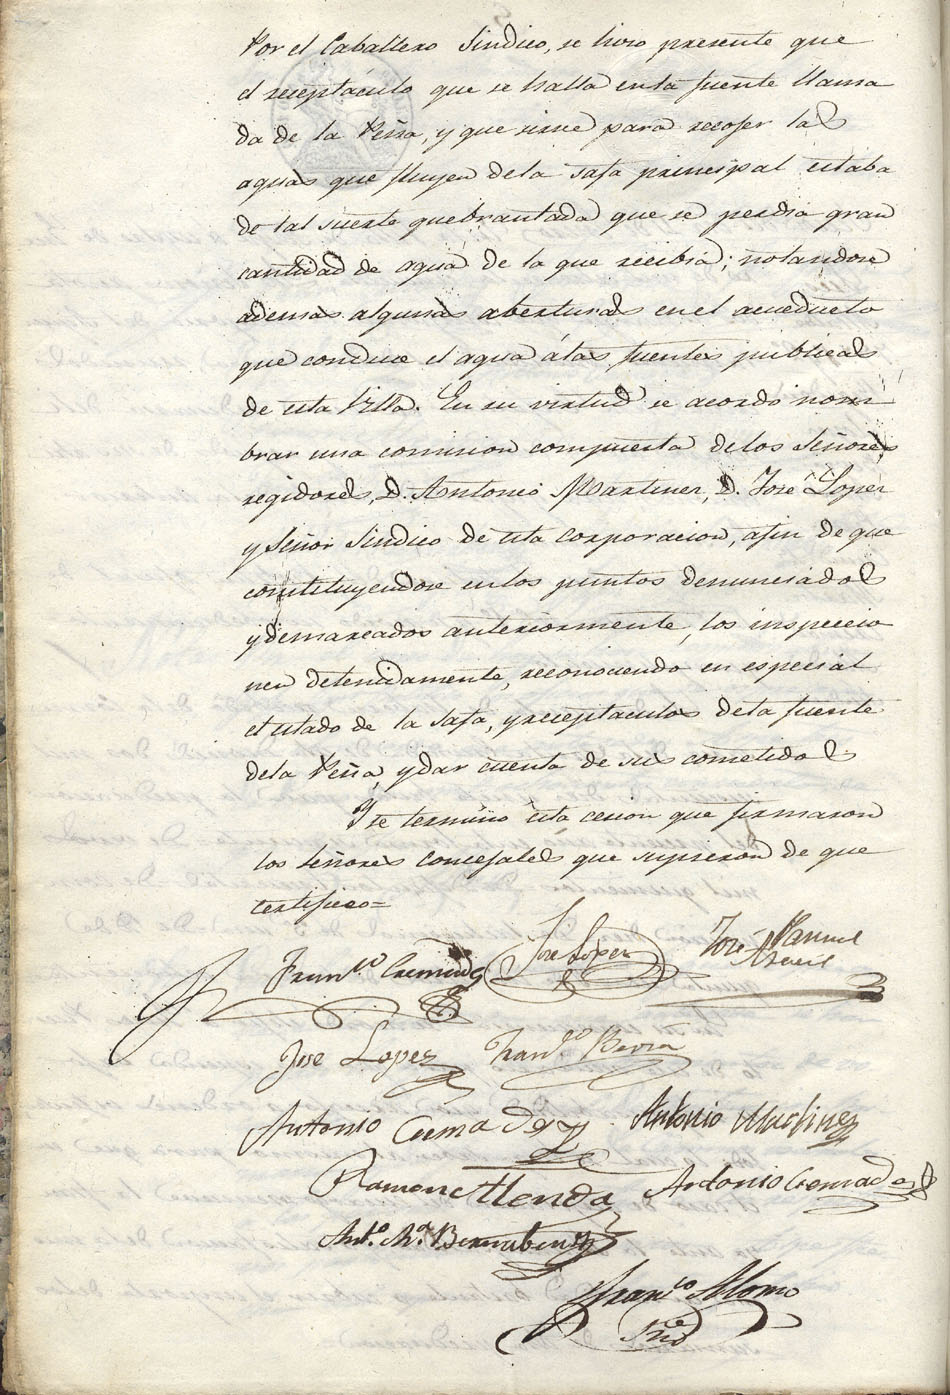 Por el Caballero Sindico, se hizo presente que
el receptáculo que se halla en la fuente llama
da de la Peña, y que sirve para recojer las
aguas que fluyen de la safa principal estaba
de tal suerte quebrantada que se perdia gran
cantidad de agua de la que recibia; notandose
ademas algunas aberturas en el acueducto
que conduce el agua á las fuentes publicas
de esta Villa. En su virtud se acordo nom
brar una comision compuesta de los Señores
regidores, D. Antonio Martinez, D. José Lopez
y Señor Sindico de esta corporacion, afin de que
constituyendose en los puntos denunciados
y demarcados anteriormente, los inspeccio
nen detenidamente, reconociendo en especial
el estado de la safa, y receptaculos de la fuente
de la Peña, y dar cuenta de sus cometidos
Y se terminó esta cesion que firmaron
los señores concejales que supieron de que
certifico=
Fran.co Cremades
José Lopez
José Manuel
Jose Lopez
Fran.co
Antonio Cremades
Antonio Martinez
Ramon Llenda
Antonio Cremades
Ant.o M.a Bernabeu
Fran.co Alonso
Srio